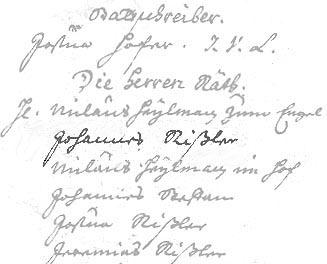 Stattschreiber.
Josua Hofer. J. V. L.
Die Herren Räth.
Hr. Niclaus Heÿlman Zum Engel
Johannes Rißler
Niclaus Heÿlman im Hof
Johannes
Josua Rißler
Jeremias Rißler